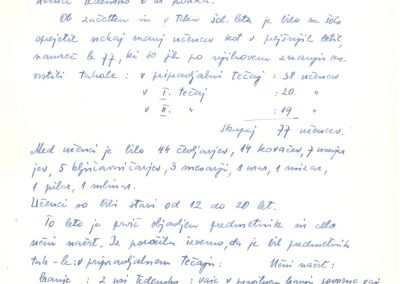 Ob začetku in v teku šol. leta je bilo v šolo
sprejetih nekaj manj učencev kot v prejšnjih letih,
namreč le 77, ki so jih po njihovem znanju raz-
vrstili takole : v pripravljalni tečaj : 38 učencev
v I. tečaj : 20 "
v II. " : 19 "
Skupaj 77 učencev.
Med učenci je bilo 44 čevljarjev, 14 kovačev, 7
jev, 5 ključavničarjev, 3 mesarji, 1 urar, 1 mizar,
1 pilar, 1 mlinar.
Učenci so bili stari od 12 do 20 let.
To leto je prvič objavljen predmetnik in celo
učni načrt. Iz poročila izvemo, da je bil predmetnik
tak-le: v pripravljalnem tečaju: Učni načrt:
branje : 2 uri tedensko : vaje v